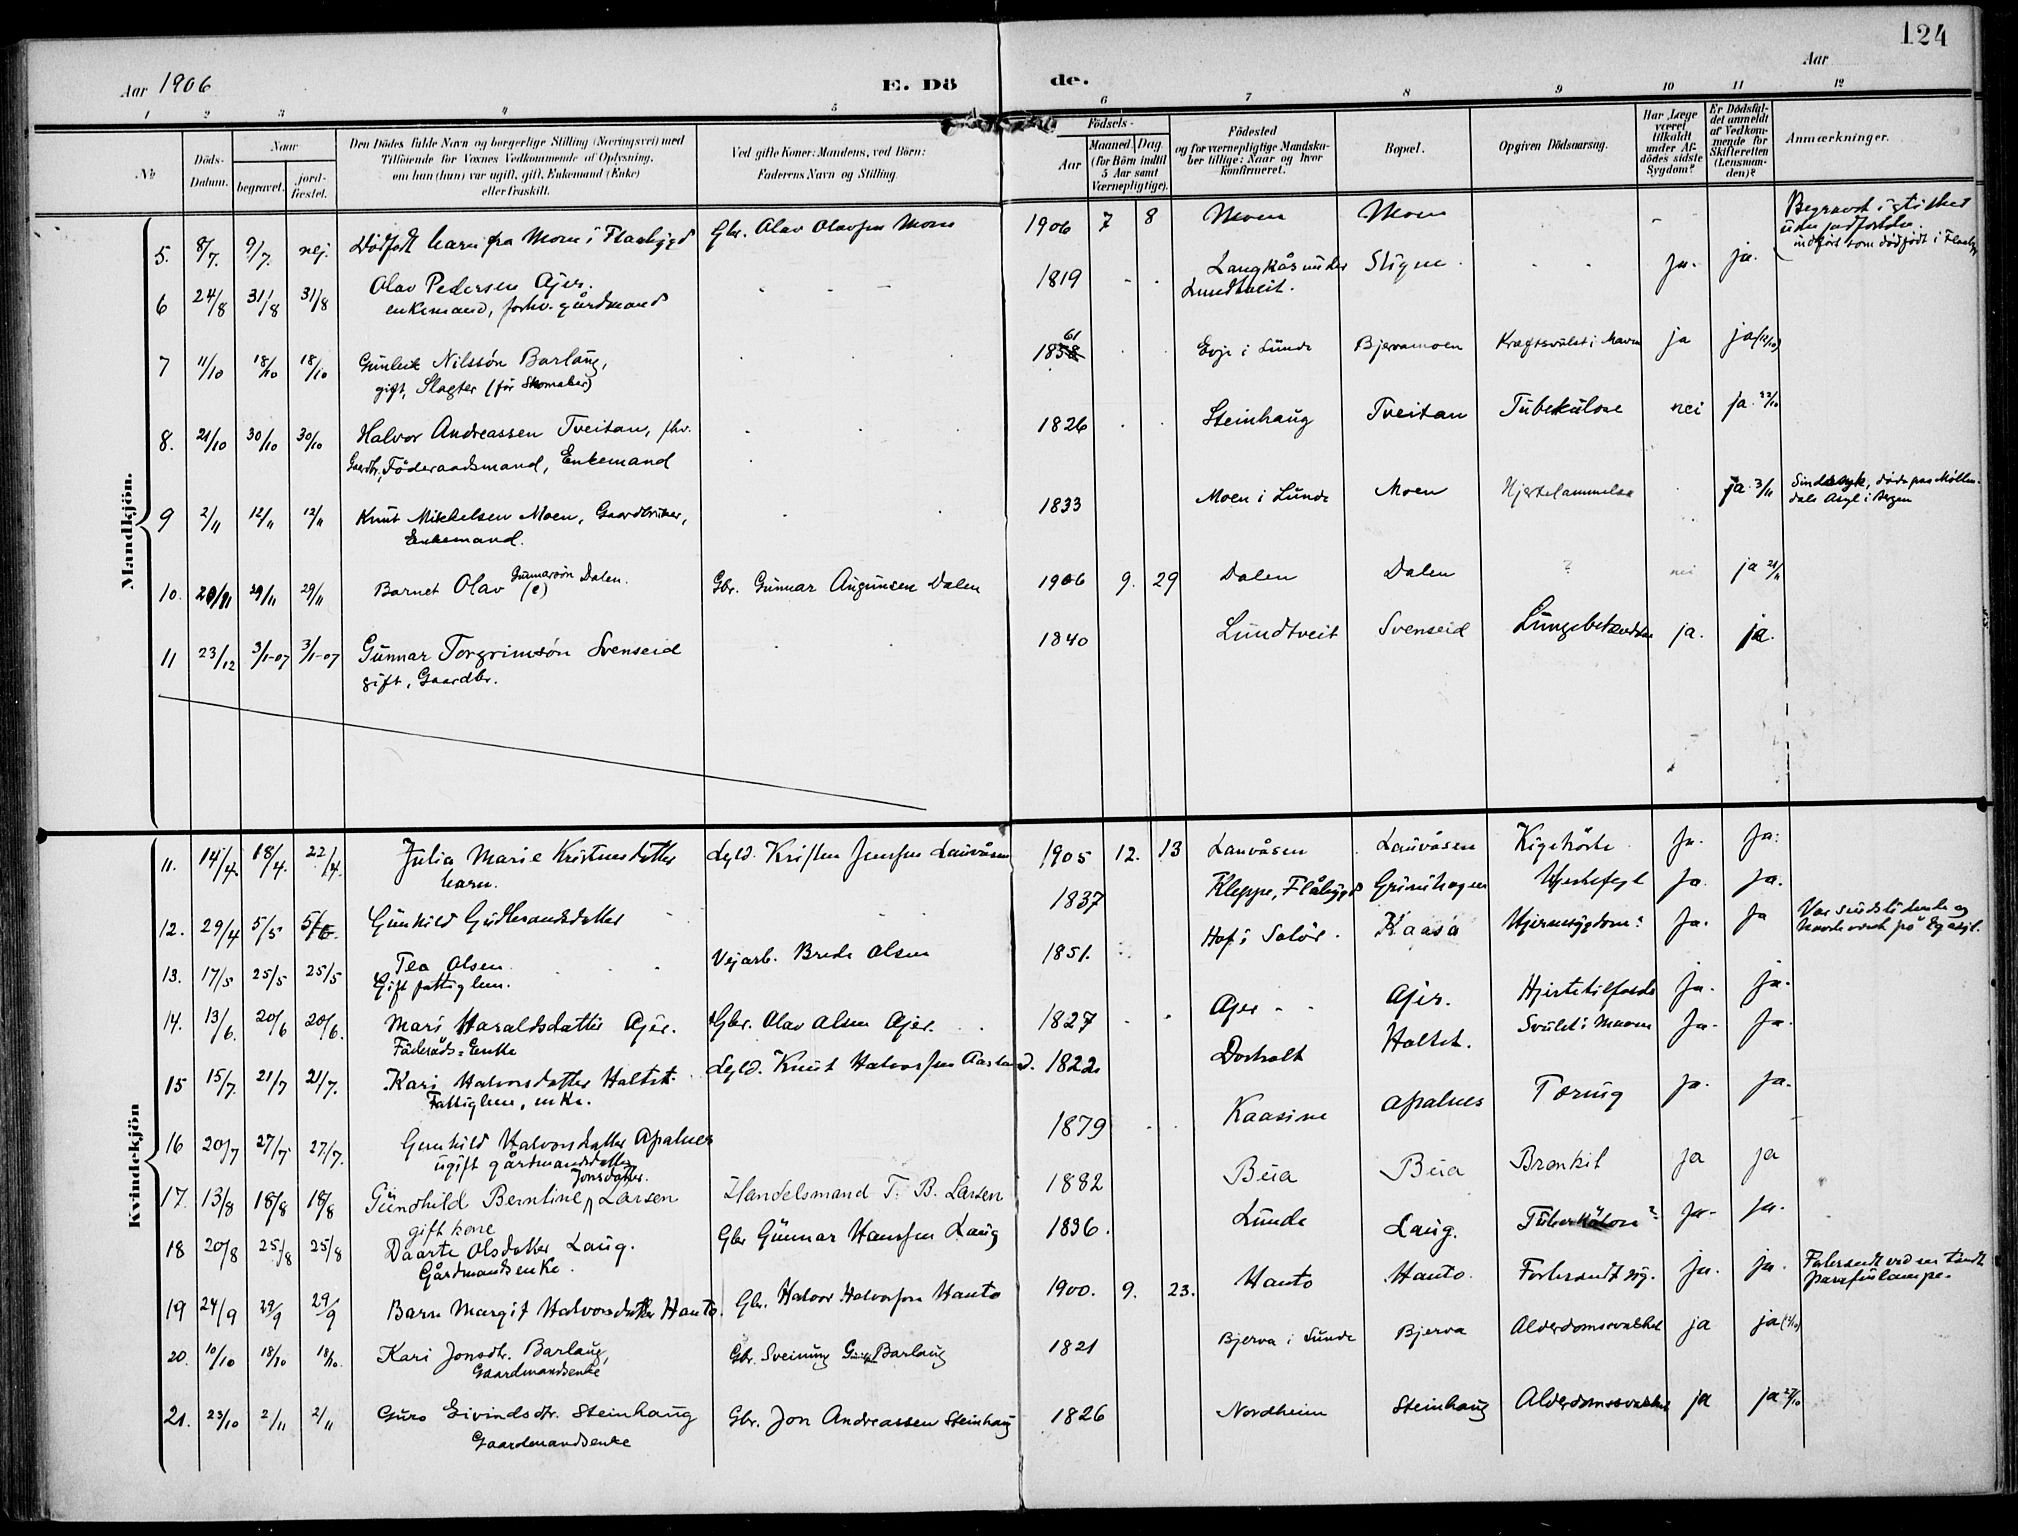 124
Aar 1906
E. Döde.
Aar
1 2 3 4 5 6 7 8 9 10 11 12
No
Döds-Datum.
Naar
begravet.
jord-fæstet.
Den Dödes fulde Navn og borgerlige Stilling (Næringsvei) med
Tilföiende for Voxnes Vedkommende af Oplysning,
om han (hun) var ugift, gift, Enkemand (Enke)
eller fraskilt.
Ved gifte Koner: Mandens, ved Börn:
Faderens Navn og Stilling.
Födsels-
Aar
Maaned. Dag.
(for Börn indtil
5 Aar samt
Værnepligtige).
Födested
og for værnepligtige Mandska-
ber tillige: Naar og hvor
konfirmeret.
Bopæl.
Opgiven Dödsaarsag.
Har Læge
været
tilkaldt
under Af-
dödes sidste
Sygdom?
Er Dödsfal-
det anmeldt
af Vedkom-
mende for
Skifteretten
(Lensman-
den)?
Anmærkninger.
Mandkjön.
5. 8/7. 9/7. nej. Dødfødt barn fra Moen i Flaabygd Gbr. Olav Olavsen Moen 1906 7 8 Moen Moen - Begravet i stilhed
uden jordfæstelse.
indført som dødfødt i
6 24/8 31/8 31/8 Olav Pedersen Ajer. 1819 Langkås under Lundtveit. Stigen. ja. ja.
enkemand, forhv. gårdmand
7 11/10 18/10 18/10 Gunleik Nilssön Barlaug, 1858 61 Evje i Lunde Bjervamoen Kræftsvulst i Maven ja ja (12/10)
gift, Slagter (för Skomaker)
8. 21/10 30/10 30/10 Halvor Andreassen Tveitan, fhv. 1826 Steinhaug Tveitan Tuberkulose nei ja 22/10
Gaardbr, Föderaadsmand, Enkemand
9 2/11 12/11 12/11 Knut Mikkelsen Moen, Gaardbruker, 1833 Moen i Lunde Moen Hjertelammelse ja 3/11 Sindssyk, døde paa Möllen-
dals Asyl i Bergen
Enkemand.
10. 20/11 29/11 29/11 Barnet Olav Gunnarsön Dalen. (e) Gbr. Gunnar Augunsen Dalen 1906 9. 29 Dalen Dalen ? nei ja 21/11
11 23/12 3/1-07 3/1-07 Gunnar Torgrimsön Svenseid 1840 Lundtveit Svenseid Lungebetændelse ja. ja.
gift, Gaardbr.
Kvindekjön
11. 14/4. 18/4. 22/4. Julia Marie Kristensdatter Kristen Jensen Lauvåsen 1905 12. 13 Lauvåsen Lauvåsen Kighoste ja. ja.
barn.
12. 29/4 5/5 5/5. Gunhild Gudbrandsdatter 1837 Kleppe, Flåbygd Grinihagen Hjertefejl ja. ja.
13. 17/5 25/5 25/5 Tea Olsen. Vejarb. Brede Olsen 1851. Hof i Solør. Kaasa Hjernesygdom? ja. ja Var sindslidende og
havde været på Eg asyl.
Gift fattiglem.
14. 13/6. 20/6 20/6. Mari Haraldsdatter Ajer. Gbr. Olav Olsen Ajer. 1827 Ajer Ajer. Hjertetilfælde ja. ja.
Föderåds-Enke
15 15/7. 21/7 21/7. Kari Halvorsdatter Haltet. Knut Halvorsen Aasland. 1822 Dorholt Haltet. Svulst i Maven ja. ja.
Fattiglem, enke.
16 20/7 27/7 27/7. Gunhild Halvorsdatter Apalnes 1879 Kaasine Apalnes Tæring ja. ja.
ugift gårdmandsdatter
17. 13/8 18/8 18/8 Gundhild Berntine Jonsdatter Larsen Handelsmand T. B. Larsen 1882 Bua Bua Bronkit ja ja
gift kone
18 20/8 25/8 25/8 Daarte Olsdatter Laug. Gbr Gunnar Hansen Laug 1836. Lunde Laug. Tuberkulose? ja. ja.
Gårdmandsenke.
19 24/9 29/9 29/9 Barn Margit Halvorsdatter Hanto. Gbr. Halvor Halvorsen Hanto 1900. 9. 23. Hanto Hanto. Forbrændt sig. ja. ja. Forbrændt ved en tændt
parafinlampe.
20. 10/10 18/10 18/10. Kari Jonsdtr. Barlaug, Gbr. Sveinung Barlaug 1821 Bjerva i Lunde Bjerva Alderdomssvakhet ja ja (12/10)
Gaardmandsenke
21. 23/10 2/11 2/11 Guro Eivindsdtr. Steinhaug Gbr. Jon Andreassen Steinhaug 1826 Nordheim Steinhaug Alderdomssvakhet ja ja 27/10
Gaardmandsenke